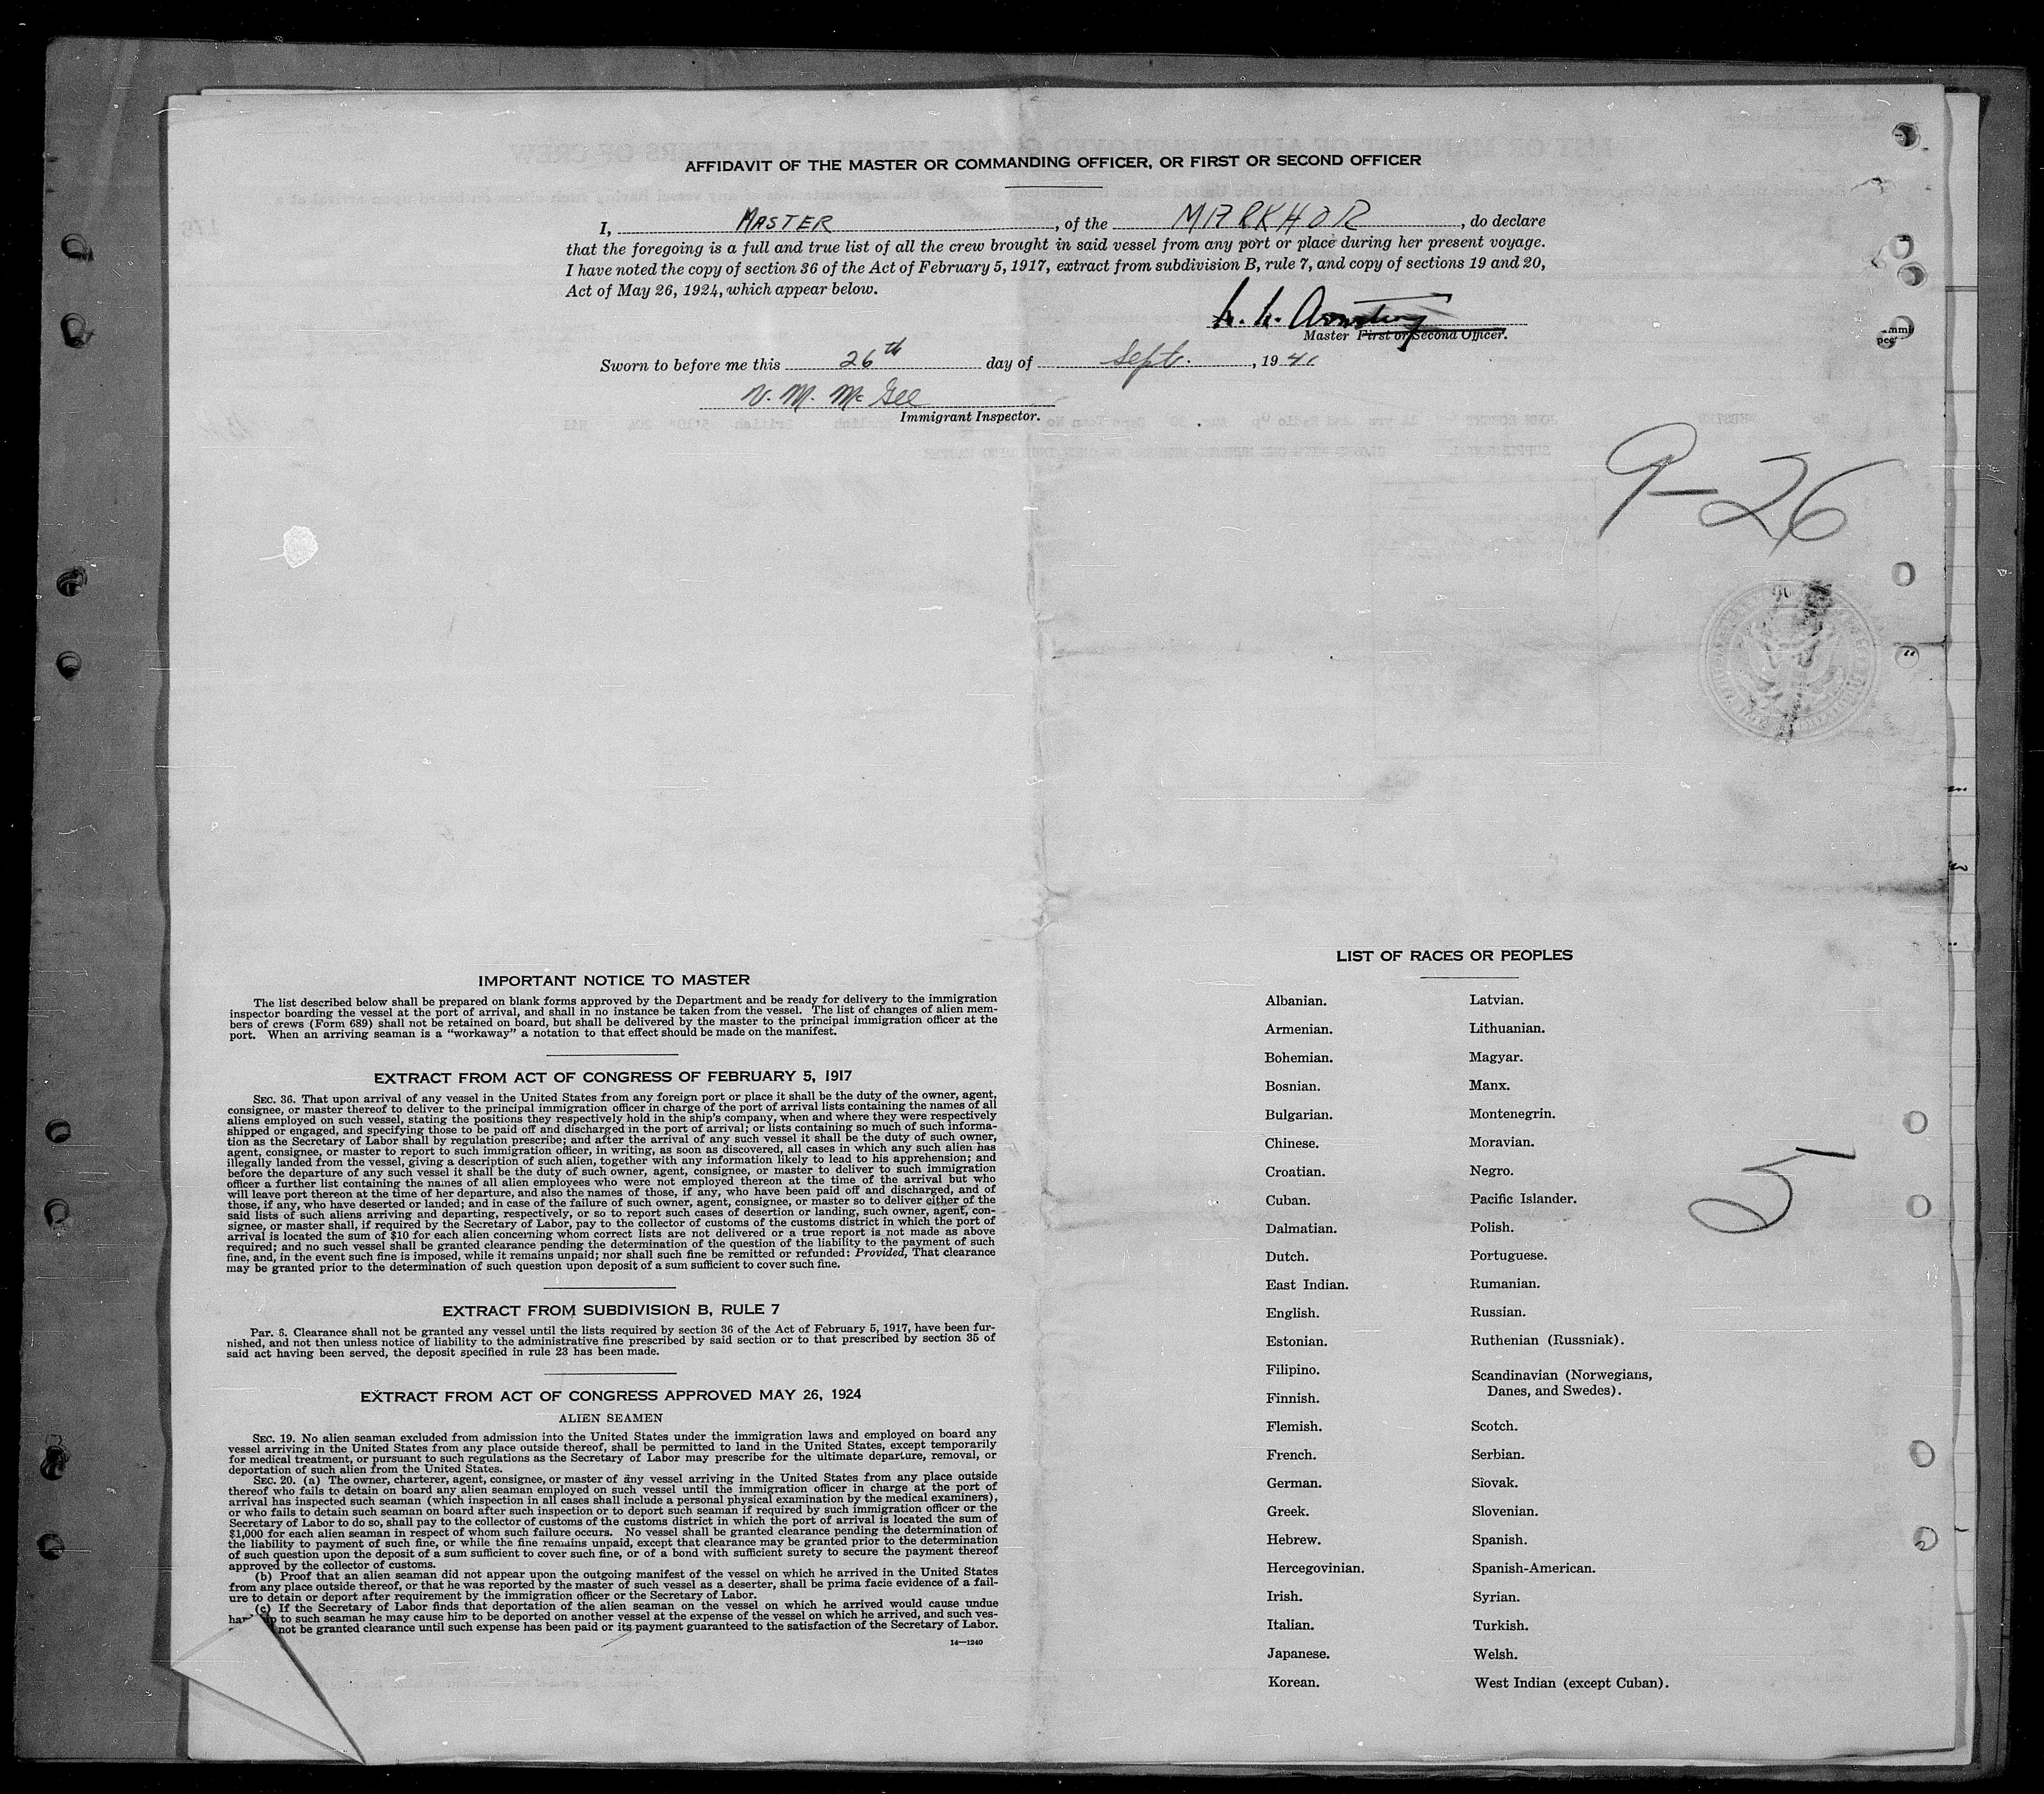 AFFIDAVIT OF THE MASTER OR COMMANDING OFFICER, OR FIRST OR SECOND OFFICER
I, MASTER, of the MARKHOR, do declare
that the foregoing is a full and true list of all the crew brought in said vessel from any port or place during her present voyage.
I have noted the copy of section 36 of the Act of February 5, 1917, extract from subdivision B, rule 7, and copy of sections 19 and 20,
Act of May 26, 1924, which appear below.
Armstrong
Master First or Second Officer.
Sworn to before me this 26th day of Sept., 1941
V. M. McGee
Immigrant Inspector.
9-26
5
IMPORTANT NOTICE TO MASTER
The list described below shall be prepared on blank forms approved by the Department and be ready for delivery to the immigration
inspector boarding the vessel at the port of arrival, and shall in no instance be taken from the vessel. The list of changes of alien mem-
bers of crews (Form 689) shall not be retained on board, but shall be delivered by the master to the principal immigration officer at the
port. When an arriving seaman is a "workaway" a notation to that effect should be made on the manifest.
EXTRACT FROM ACT OF CONGRESS OF FEBRUARY 5, 1917
SEC. 36. That upon arrival of any vessel in the United States from any foreign port or place it shall be the duty of the owner, agent,
consignee, or master thereof to deliver to the principal immigration officer in charge of the port of arrival lists containing the names of all
aliens employed on such vessel, stating the positions they respectively hold in the ship's company, when and where they were respectively
shipped or engaged, and specifying those to be paid off and discharged in the port of arrival; or lists containing so much of such informa-
tion as the Secretary of Labor shall by regulation prescribe; and after the arrival of any such vessel it shall be the duty of such owner,
agent, consignee, or master to report to such immigration officer, in writing, as soon as discovered, all cases in which any such alien has
illegally landed from the vessel, giving a description of such alien, together with any information likely to lead to his apprehension; and
before the departure of any such vessel it shall be the duty of such owner, agent, consignee, or master to deliver to such immigration
officer a further list containing the names of all alien employees who were not employed thereon at the time of the arrival but who
will leave port thereon at the time of her departure, and also the names of those, if any, who have been paid off and discharged, and of
those, if any, who have deserted or landed; and in case of the failure of such owner, agent, consignee, or master so to deliver either of the
said lists of such aliens arriving and departing, respectively, or so to report such cases of desertion or landing, such owner, agent, con-
signee, or master shall, if required by the Secretary of Labor, pay to the collector of customs of the customs district in which the port of
arrival is located the sum of $10 for each alien concerning whom correct lists are not delivered or a true report is not made as above
required; and no such vessel shall be granted clearance pending the determination of the question of the liability to the payment of such
fine, and, in the event such fine is imposed, while it remains unpaid; nor shall such fine be remitted or refunded: Provided, That clearance
may be granted prior to the determination of such question upon deposit of a sum sufficient to cover such fine.
EXTRACT FROM SUBDIVISION B, RULE 7
Par. 8. Clearance shall not be granted any vessel until the lists required by section 36 of the Act of February 5, 1917, have been fur-
nished, and not then unless notice of liability to the administrative fine prescribed by said section or to that prescribed by section 35 of
said act having been served, the deposit specified in rule 23 has been made.
EXTRACT FROM ACT OF CONGRESS APPROVED MAY 26, 1924
ALIEN SEAMEN
SEC. 19. No alien seaman excluded from admission into the United States under the immigration laws and employed on board any
vessel arriving in the United States from any place outside thereof, shall be permitted to land in the United States, except temporarily
for medical treatment, or pursuant to such regulations as the Secretary of Labor may prescribe for the ultimate departure, removal, or
deportation of such alien from the United States.
SEC. 20. (a) The owner, charterer, agent, consignee, or master of any vessel arriving in the United States from any place outside
thereof who fails to detain on board any alien seaman employed on such vessel until the immigration officer in charge at the port of
arrival has inspected such seaman (which inspection in all cases shall include a personal physical examination by the medical examiners),
or who fails to detain such seaman on board after such inspection or to deport such seaman if required by such immigration officer or the
Secretary of Labor to do so, shall pay to the collector of customs of the customs district in which the port of arrival is located the sum of
$1,000 for each alien seaman in respect of whom such failure occurs. No vessel shall be granted clearance pending the determination of
the liability to payment of such fine, or while the fine remains unpaid, except that clearance may be granted prior to the determination
of such question upon the deposit of a sum sufficient to cover such fine, or of a bond with sufficient surety to secure the payment thereof
approved by the collector of customs.
(b) Proof that an alien seaman did not appear upon the outgoing manifest of the vessel on which he arrived in the United States
from any place outside thereof, or that he was reported by the master of such vessel as a deserter, shall be prima facie evidence of a fail-
ure to detain or deport after requirement by the immigration officer or the Secretary of Labor.
(c) If the Secretary of Labor finds that deportation of the alien seaman on the vessel on which he arrived would cause undue
to such seaman he may cause him to be deported on another vessel at the expense of the vessel on which he arrived, and such ves-
not be granted clearance until such expense has been paid or its payment guaranteed to the satisfaction of the Secretary of Labor.
14—1240
LIST OF RACES OR PEOPLES
Albanian.
Armenian.
Bohemian.
Bosnian.
Bulgarian.
Chinese.
Croatian.
Cuban.
Dalmatian.
Dutch.
East Indian.
English.
Estonian.
Filipino.
Finnish.
Flemish.
French.
German.
Greek.
Hebrew.
Hercegovinian.
Irish.
Italian.
Japanese.
Korean.
Latvian.
Lithuanian.
Magyar.
Manx.
Montenegrin.
Moravian.
Negro.
Pacific Islander.
Polish.
Portuguese.
Rumanian.
Russian.
Ruthenian (Russniak).
Scandinavian (Norwegians,
Danes, and Swedes).
Scotch.
Serbian.
Slovak.
Slovenian.
Spanish.
Spanish-American.
Syrian.
Turkish.
Welsh.
West Indian (except Cuban).